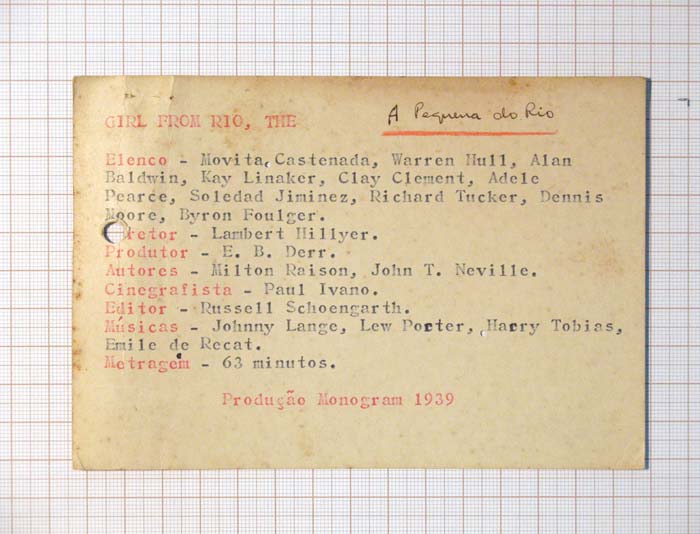 GIRL FROM RIO, THE
A Pequena do Rio
Elenco - Movita Castenada, Warren Hull, Alan
Baldwin, Kay Linaker, Clay Clement, Adele
Pearce, Soledad Jiminez, Richard Tucker, Dennis
Moore, Byron Foulger.
retor - Lambert Hillyer.
Produtor - E. B. Derr.
Autores - Milton Raison, John T. Neville.
Cinegrafista - Paul Ivano.
Editor - Russell Schoengarth.
Músicas - Johnny Lange, Lew Porter, Harry Tobias,
Emile de Recat.
Metragem - 63 minutos.
Produção Monogram 1939